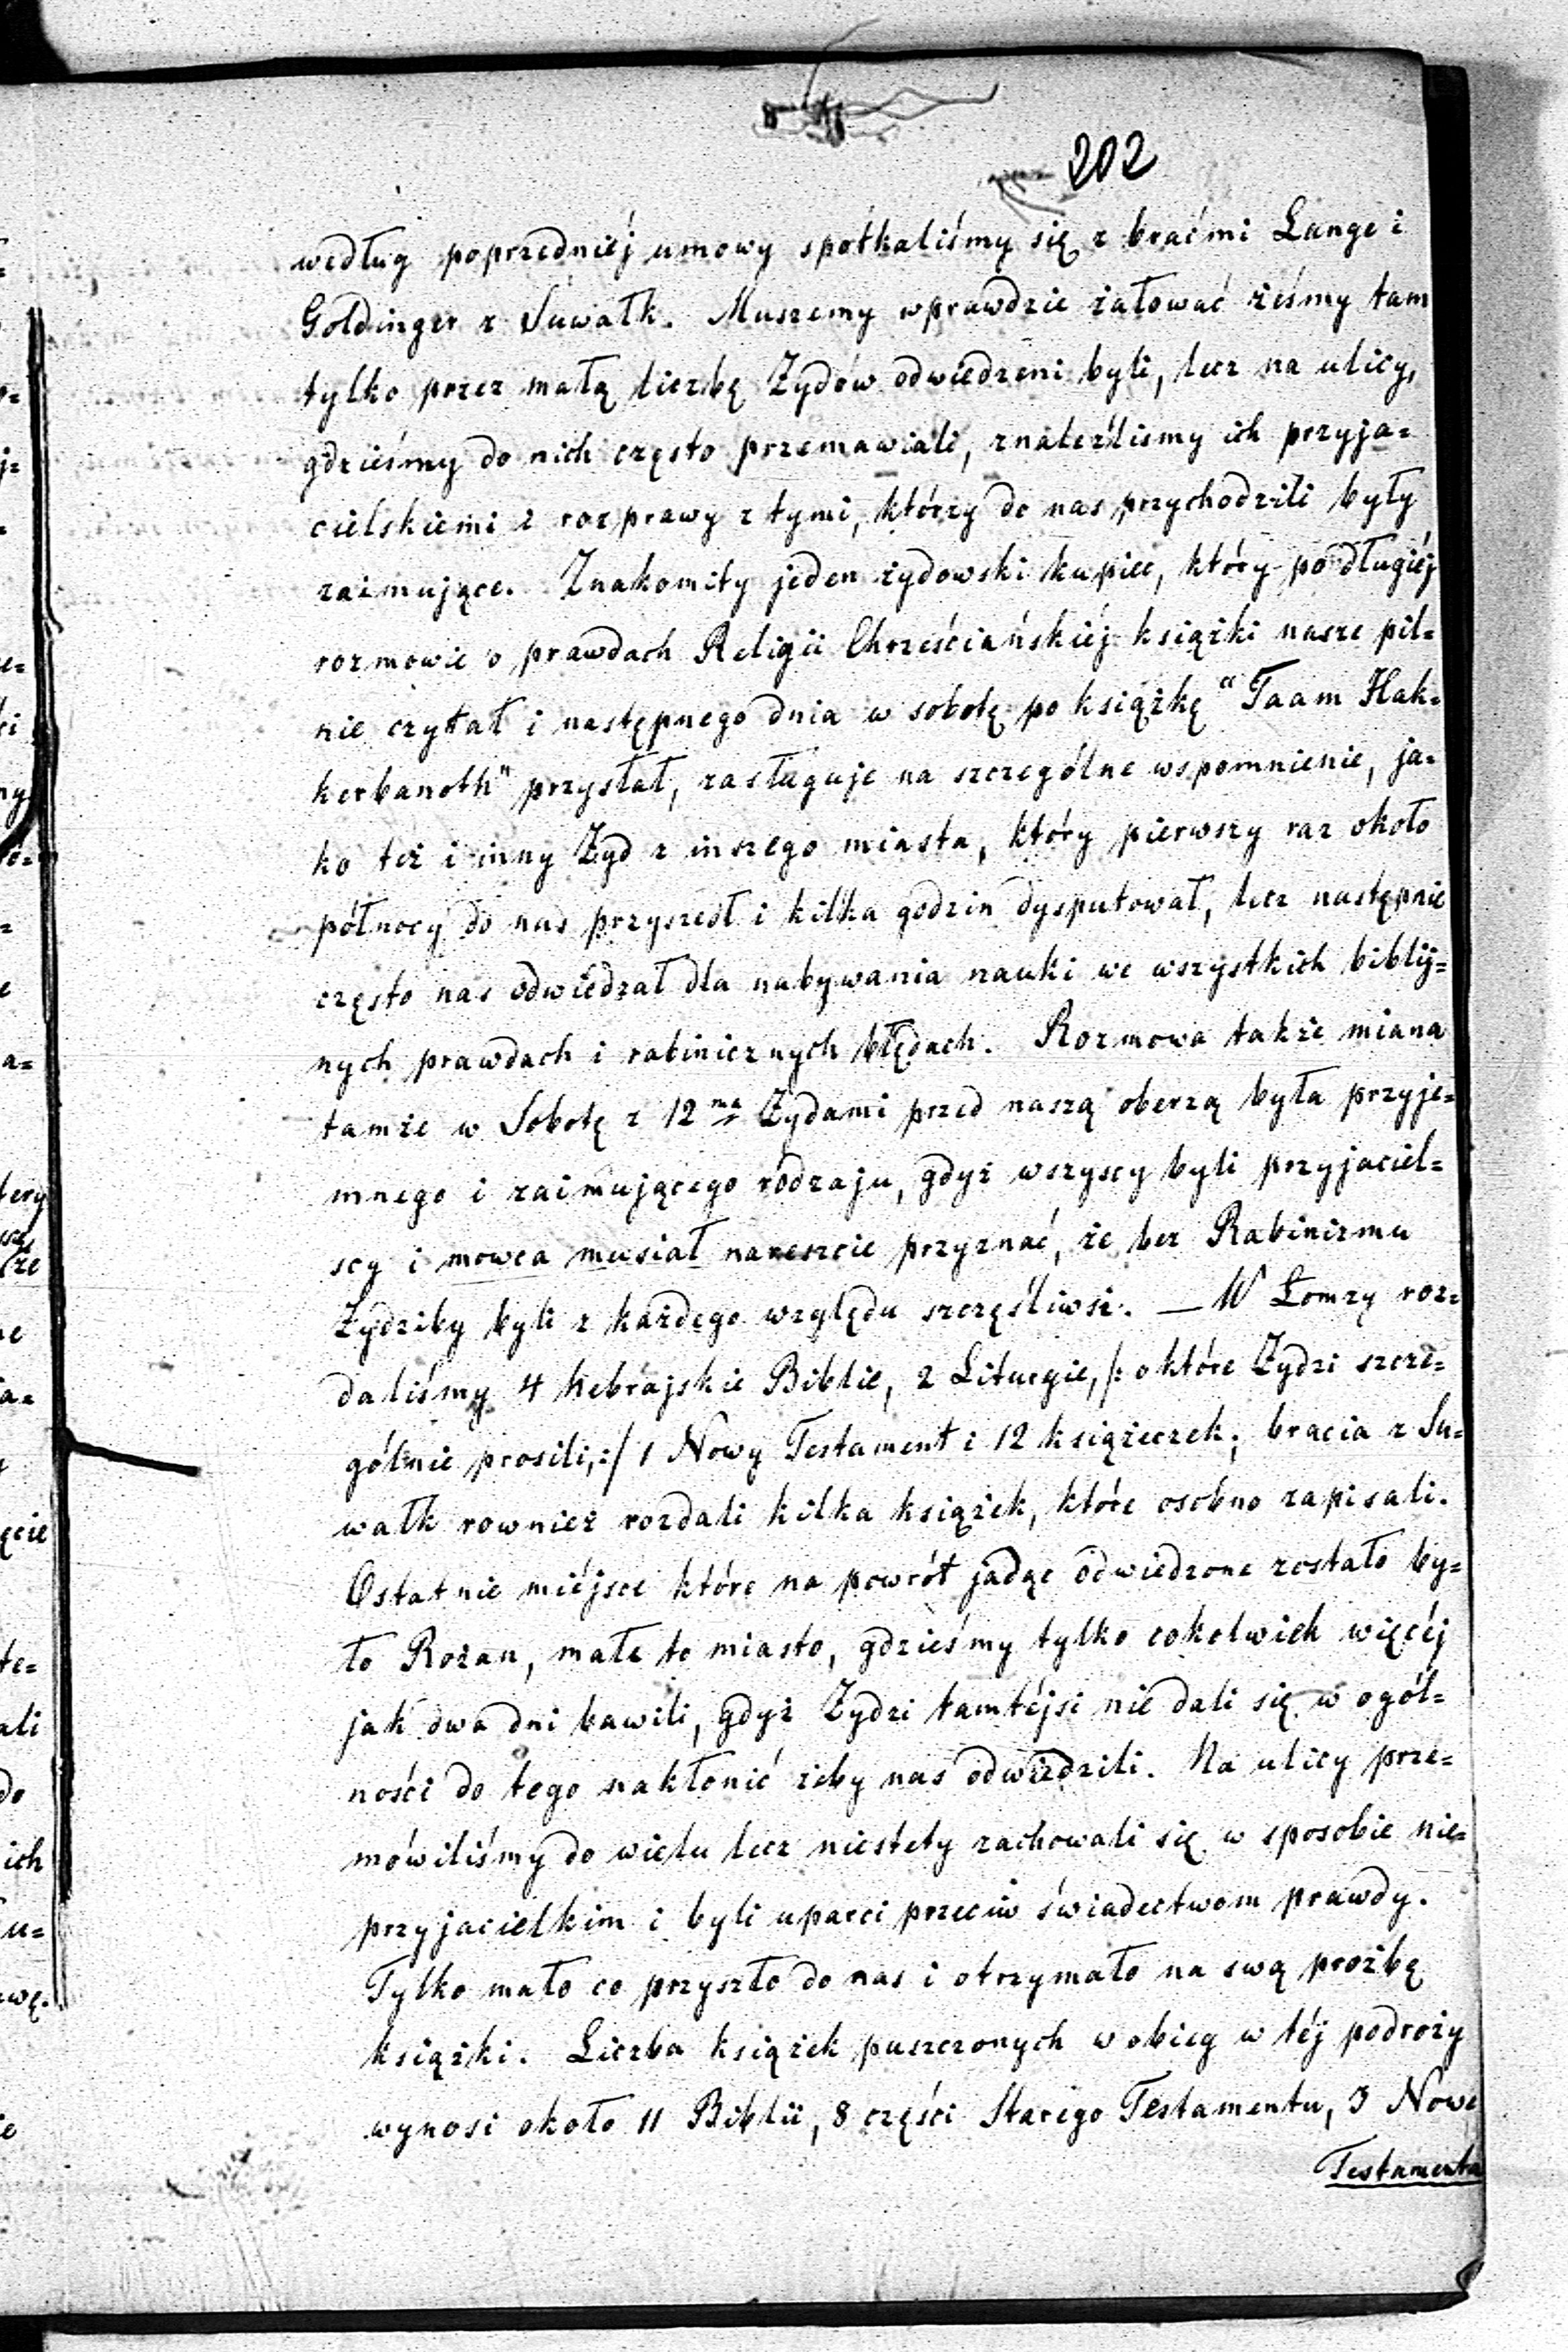 202
według poprzedniéj umowy spotkaliśmy się z braćmi Lange i
Goldinger z Suwałk. Muszemy wprawdzie żałować żeśmy tam
tylko przez małą liczbę Żydów odwiedzeni byli, lecz na ulicy,
gdzieśmy do nich często przemawiali, znaleźlismy ich przyja=
cielskiemi i rozprawy z tymi, którzy do nas przychodzili były
zaimujące. Znakomity jeden żydowski kupiec, który po długiéj
rozmowie o prawdach Religii Chrześciańskiéj książki nasze pil=
nie czytał i następnego dnia w sobotę po książkę "Taam Hak=
kerbanoth" przysłał, zasługuje na szczególne wspomnienie, ja=
ko też i inny Żyd z inszego miasta, który pierwszy raz około
północy do nas przyszedł i kilka godzin dysputował, lecz następnie
często nas odwiedzał dla nabywania nauki we wszystkich biblij=
nych prawdach i rabinicznych błędach. Rozmowa także miana
tamże w Sobotę z 12ma Żydami przed naszą oberzą była przyje=
mnego i zaimującego rodzaju, gdyż wszyscy byli przyjaciel=
scy i mowca musiał nareszcie przyznać, że bez Rabinizmu
Żydziby byli z każdego względu szczęśliwsi. — W Łomzy roz=
daliśmy 4 hebrajskie Biblie, 2 Liturgie, /: o które Żydzi szcze=
gólnie prosili, :/ 1 Nowy Testament i 12 książeczek; bracia z Su=
wałk rownież rozdali kilka książek, które osobno zapisali.
Ostatnie miéjsce które na powrót jadąc odwiedzone zostało by=
ło Rożan, małe to miasto, gdzieśmy tylko cokolwiek więcéj
jak dwa dni bawili, gdyż Żydzi tamtéjsi nie dali się w ogól=
ności do tego nakłonić żeby nas odwiedzili. Na ulicy prze=
mówiliśmy do wielu lecz niestety zachowali się w sposobie nie=
przyjacielkim i byli uparci przeciw świadectwom prawdy.
Tylko mało co przyszło do nas i otrzymało na swą prożbę
książki. Liczba książek puszczonych w obieg w téj podroży
wynosi około 11 Biblii, 8 części Starego Testamentu, 3 Nowe
Testamenta